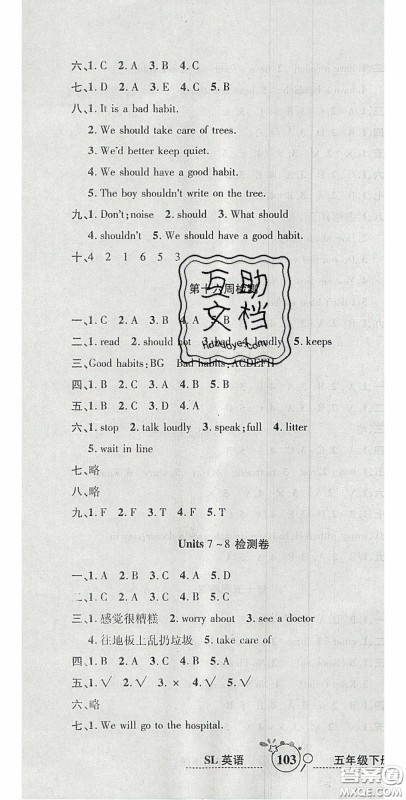 六、1. C  2. A  3. B  4. C
七、1. D  2. A  3. E  4. C  5. B
八、1. It is a bad habit.
2. We should take care of trees.
3. We'd better keep quiet.
4. We should have a good habit.
5. The boy shouldn't write on the tree.
九、1. Don't; noise  2. should  3. What should
4. shouldn't  5. We should have a good habit.
十、4  2  1  6  5  3
第十六周检测
一、1. C  2. B  3. A  4. C
二、1. read  2. should not  3. bad  4. loudly  5. keeps
三、Good habits: BG  Bad habits: ACDEFH
四、1. B  2. C  3. A  4. B  5. B
五、1. D  2. C  3. A  4. B
六、1. stop  2. talk loudly  3. speak; full  4. litter
5. wait in line
七、略
八、略
九、1. F  2. T  3. F  4. F  5. T
Units 7~8 检测卷
一、1. A  2. C  3. B  4. A  5. D
二、1. C  2. D  3. A  4. C  5. B
三、1. 感觉很糟糕  2. worry about  3. see a doctor
4. 往地板上乱扔垃圾  5. take care of
四、1. B  2. A  3. C  4. A  5. B
五、1. √  2. √  3. ×  4. √  5. √
六、略
七、1. We will go to the hospital.
SL 英语  103  五年级下册
互助
文档
Hobbdye.com
答案圈
MXQE.COM